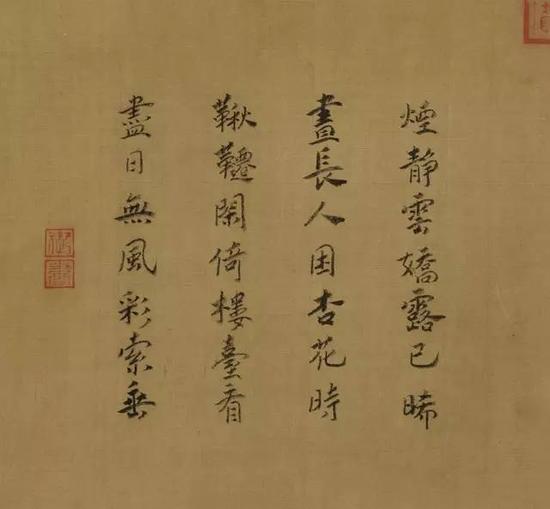 煙静雲嬌露已晞
晝長人困杏花時
鞦韆閑倚樓臺看
盡日無風彩索垂